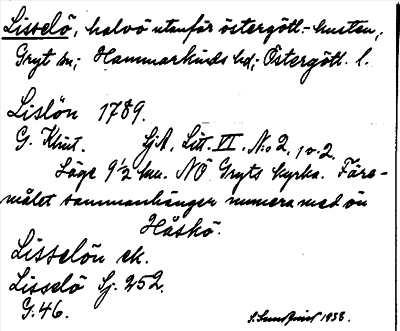 Lisselö, halvö utanför östergötl.-kusten,
Gryt sn; Hammarkinds hd; Östergötl. l.
Lislön 1789.
G. Klint. SjA, Litt. VI. No 2, 1 o. 2.
Läge 9 1/2 km. NÖ Gryts kyrka. Före-
målet sammanhänger numera med ön
Håskö.
Lisselön ek.
Lisselö Sj. 252.
G. 46.
1938.